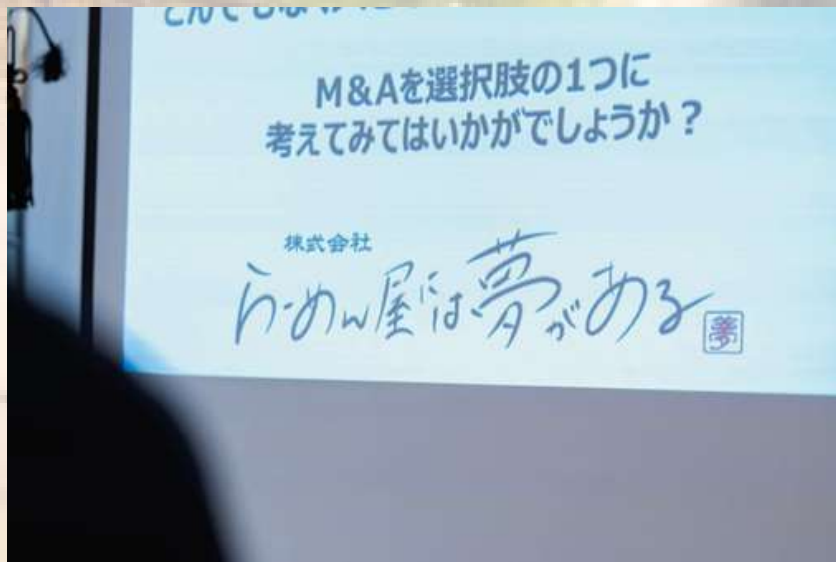 M&Aを選択肢の1つに
考えてみてはいかがでしょうか？
株式会社
らーめん屋には夢がある
夢